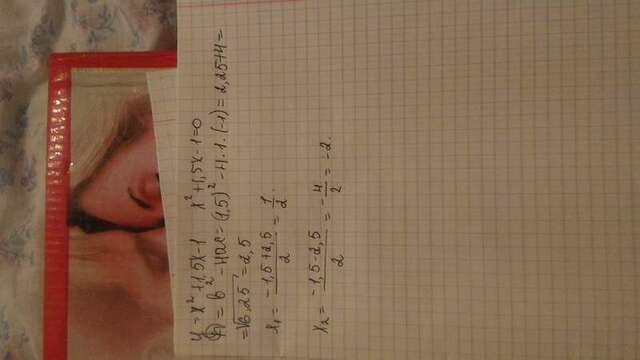 y = x² + 1,5x - 1 x² + 1,5x - 1 = 0
D = b² - 4ac = (1,5)² - 4 · 1 · (-1) = 2,25 + 4 =
= √6,25 = 2,5
x₁ = (-1,5 + 2,5)/2 = 1/2.
x₂ = (-1,5 - 2,5)/2 = -4/2 = -2.